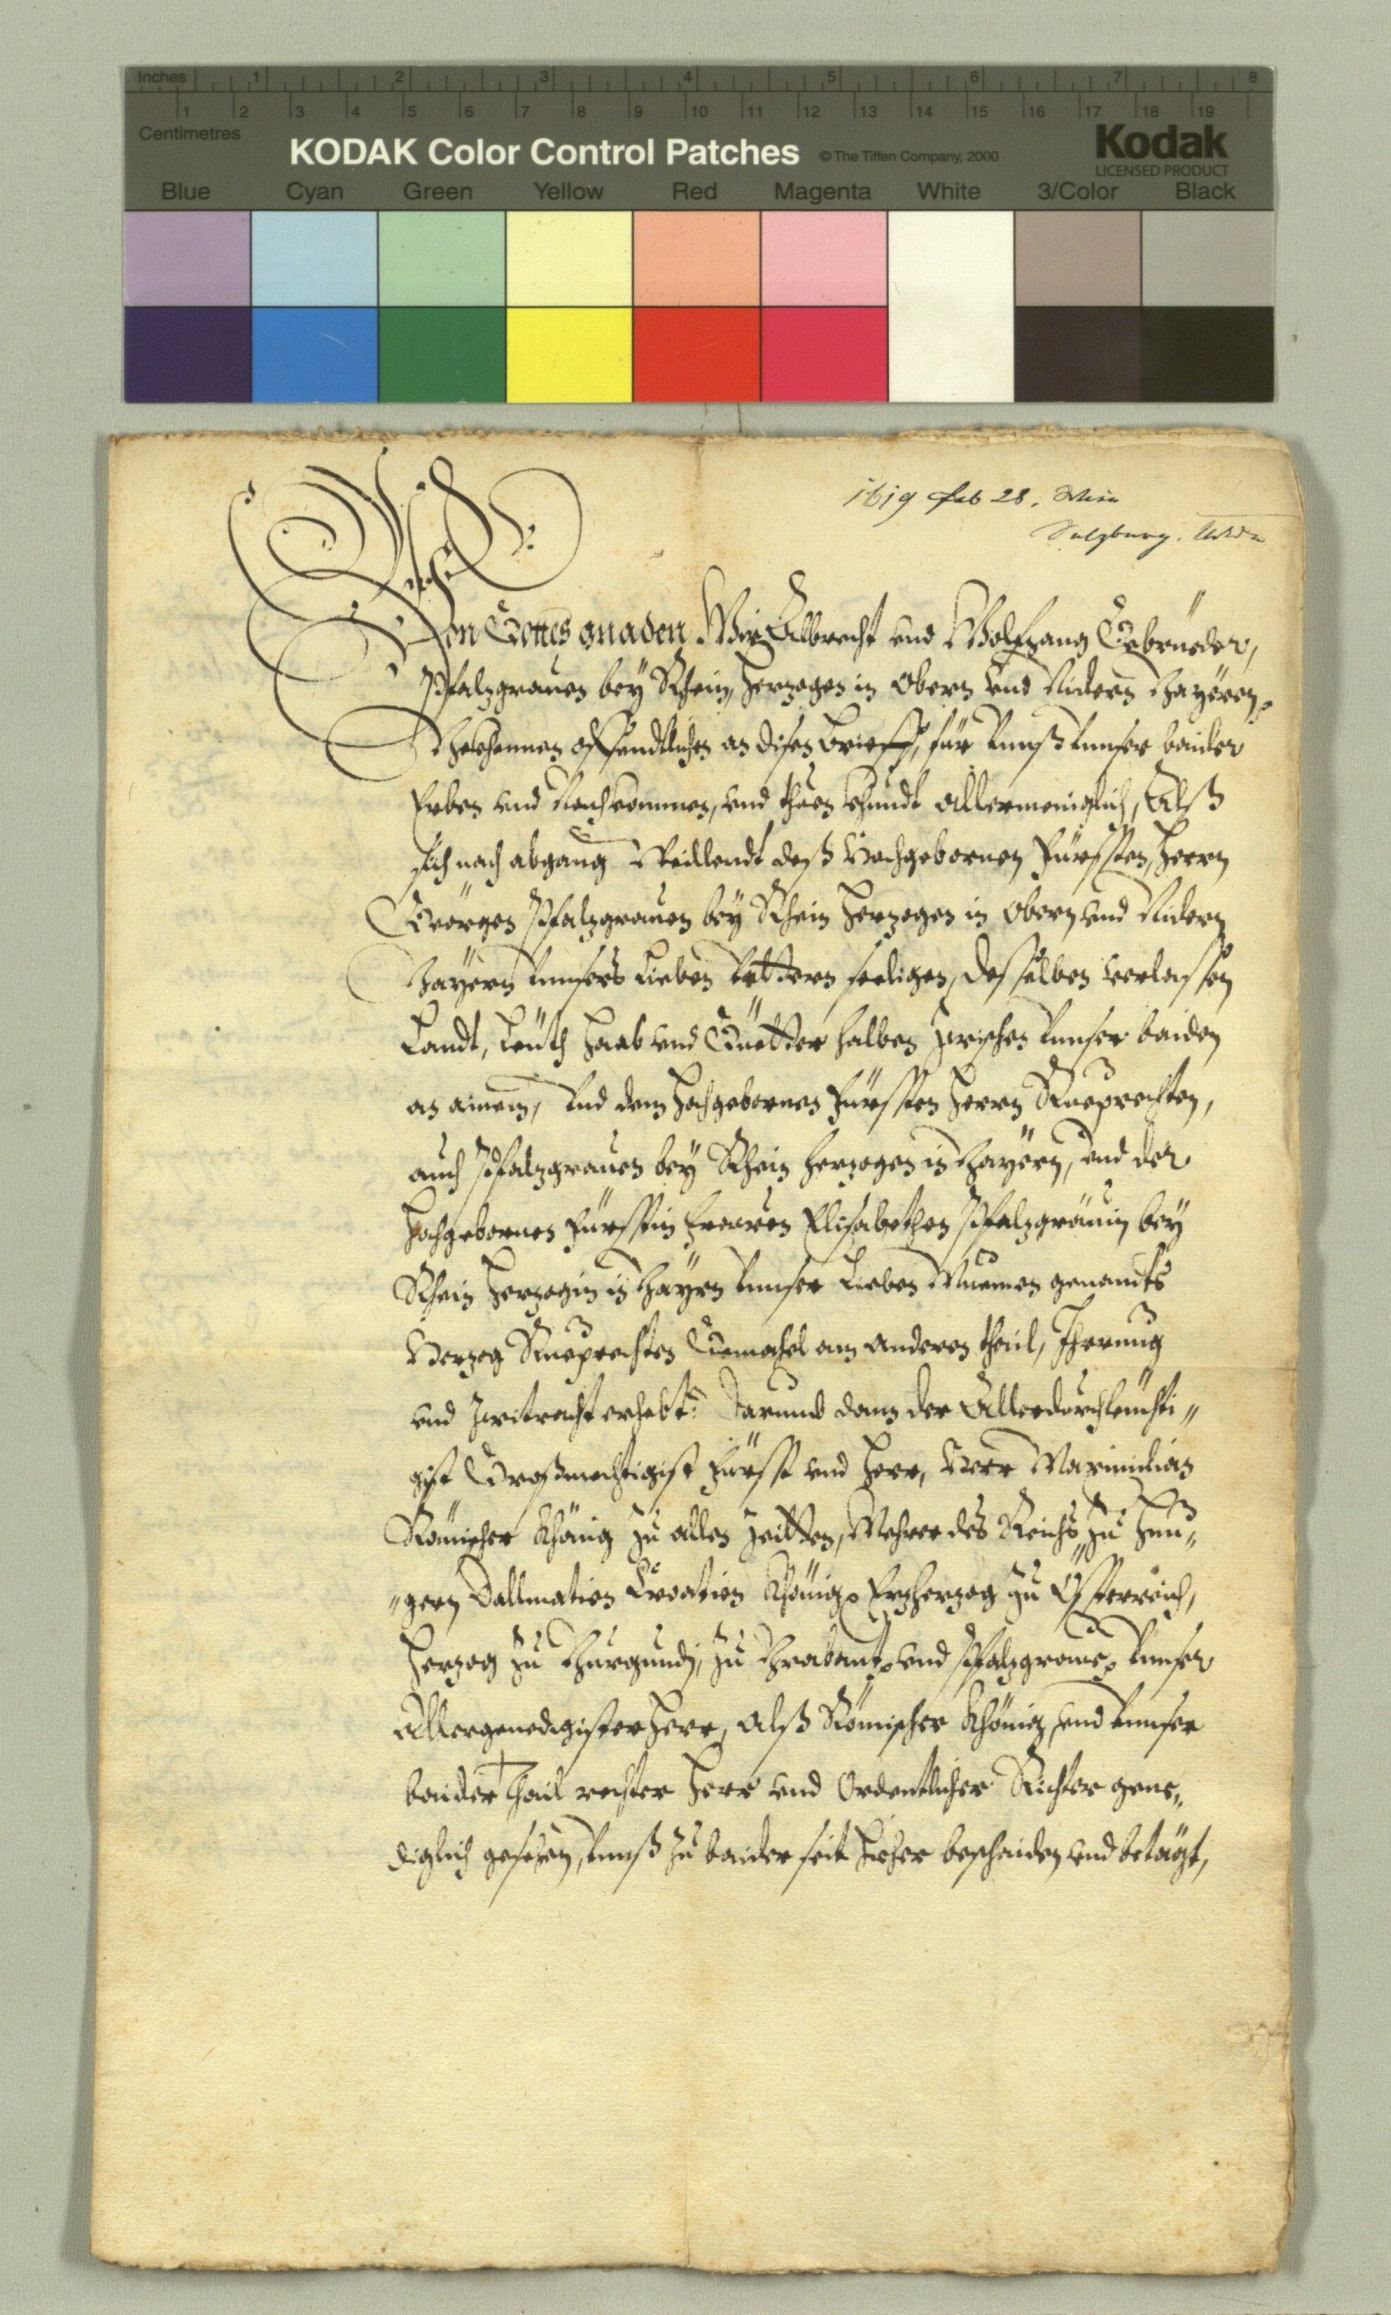 Inches 1 2 3 4 5 6 7 8
1 2 3 4 5 6 7 8 9 10 11 12 13 14 15 16 17 18 19
Centimetres
KODAK Color Control Patches © The Tiffen Company, 2000
Kodak
LICENSED PRODUCT
Blue Cyan Green Yellow Red Magenta White 3/Color Black
1619 feb 28. Wien
Salzburg.
Von Gottes gnaden Wir Albrecht vnd Wolfgang Gebrüeder,
Pfalzgrauen bey Rhein, Herzogen in Obern vnd Nidern Bayëren
Bekhennen offendtlichen an disen brieff, für Vnnß Vnnser baider
Erben vnd Nachkommen, vnd thuen khundt Allermeniglich, Alß
sich nach abgang Weillendt deß Hochgebornen Fürssten, Herrn
Geörgen Pfalzgrauen bey Rhein Herzogen in Obern vnd Nidern
Bayern Vnnsers Lieben Vettern seeligen, desselben verlassen
Landt, Leüth Haab vnd Güetter halben zwischen Vnnser baiden
an ainem, Vnd dem Hochgebornen Fürssten Herrn Rueprechten,
auch Pfalzgrauen bey Rhein Herzogen in Bayërn, vnd der
Hochgebornen Fürsstin Frawen Elisabethen Pfalzgräuin bey
Rhein Herzogin in Bayrn Vnnser Lieben Muemen genandts
Herzog Rueprechten Gemahel am anderen theil, Jhrrung
vnd Zwitracht erhebt: Darumb dann der Allerdurchleüchti„
gist Großmechtigist Fürsst vnd Herr, Herr Maximilian
Römischer Khönig zu allen Zeitten, Mehrer des Reichs, zu Hun„
„gern Dallmatien Croatien Khönig Erzherzog zu Össterreich,
Herzog zu Burgundj, zu Brabant vnd Pfalzgraue Vnnser
Allergenedigister Herr, Alß Römischer Khönig, vnd Vnnser
baider thail rechter Herr vnd Ordentlicher Richter gene„
diglich gesehen, Vnnß zu baider seit hieher beschaiden vnd betägt,